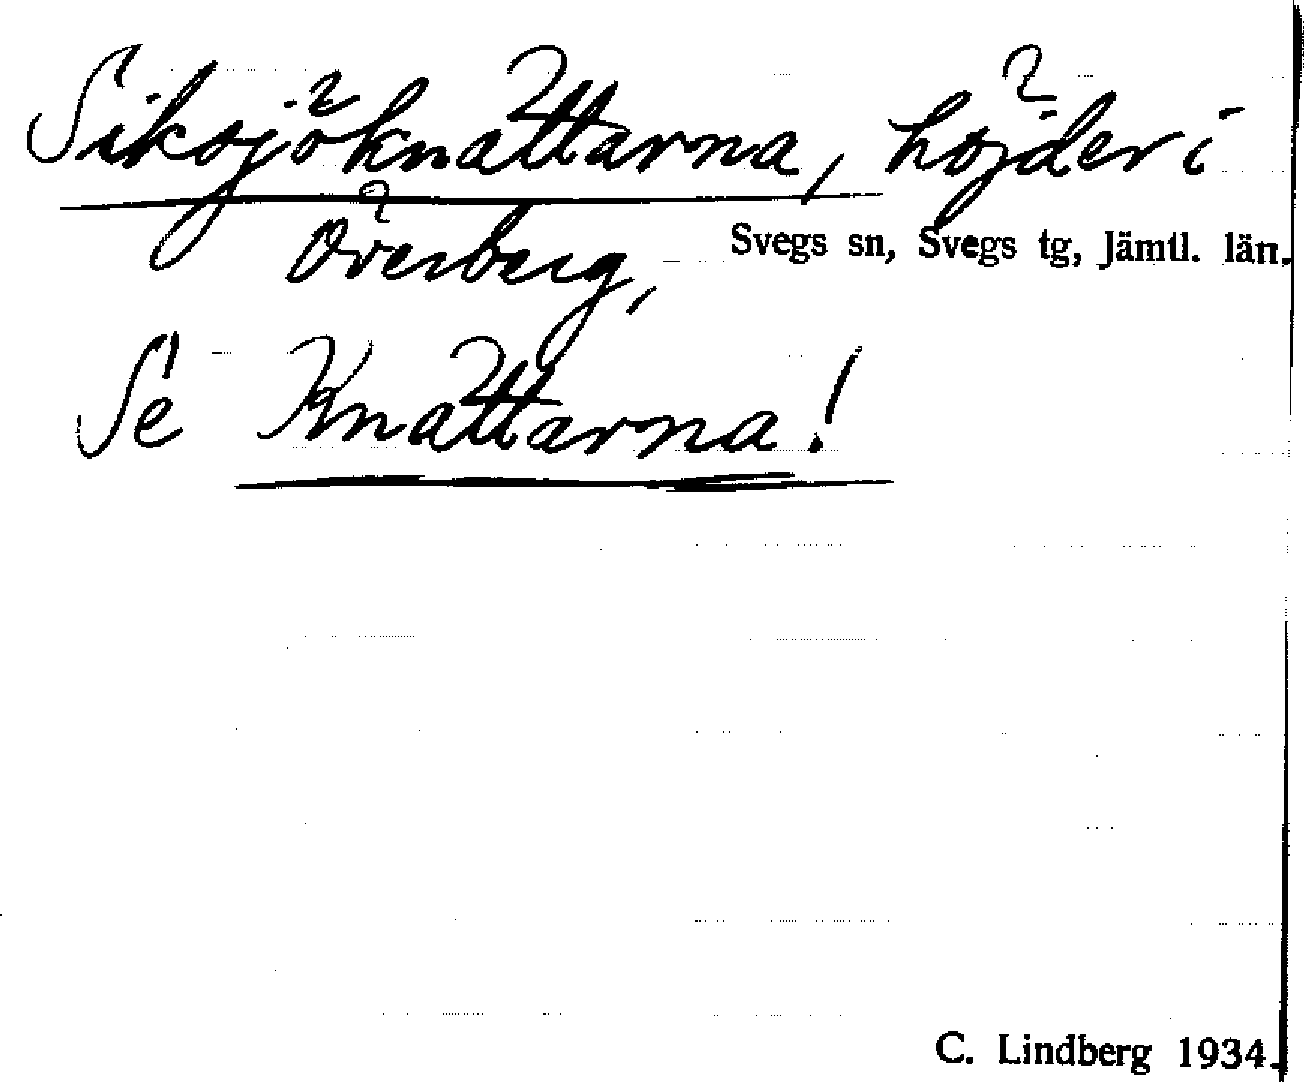 Siksjöknattarna, höjder i
Överberg, Svegs sn, Svegs tg, Jämtl. län.
Se Knattarna!
C. Lindberg 1934.